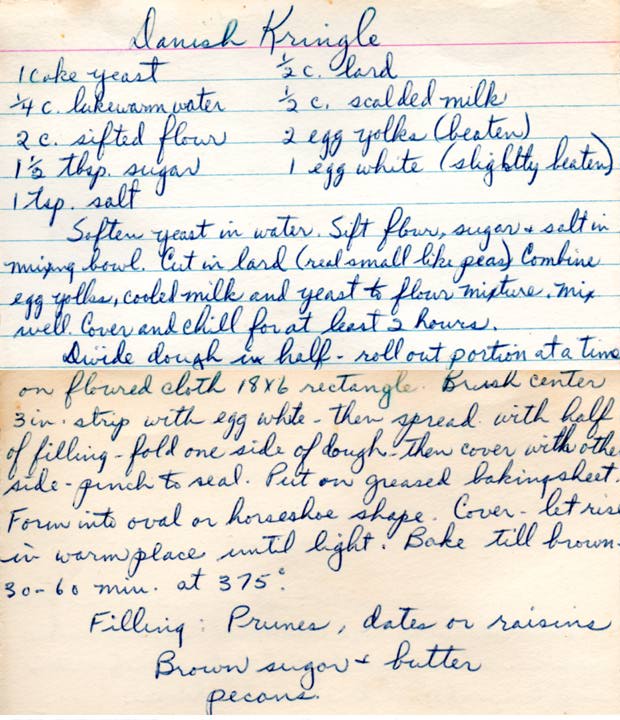 Danish Kringle
1 Cake yeast ½ c. lard
¼ c. lukewarm water ½ c. scalded milk
2 c. sifted flour 2 egg yolks (beaten)
1½ tbsp. sugar 1 egg white (slightly beaten)
1 tsp. salt
Soften yeast in water. Sift flour, sugar + salt in
mixing bowl. Cut in lard (real small like peas) Combine
egg yolks, cooled milk and yeast to flour mixture. Mix
well. Cover and chill for at least 2 hours.
Divide dough in half - roll out portion at a time
on floured cloth 18x6 rectangle. Brush center
3 in. strip with egg white - then spread with half
of filling - fold one side of dough - then cover with other
side - pinch to seal. Put on greased baking sheet.
Form into oval or horseshoe shape. Cover - let rise
in warm place until light. Bake till brown -
30-60 min. at 375°.
Filling: Prunes, dates or raisins
Brown sugar + butter
pecans.